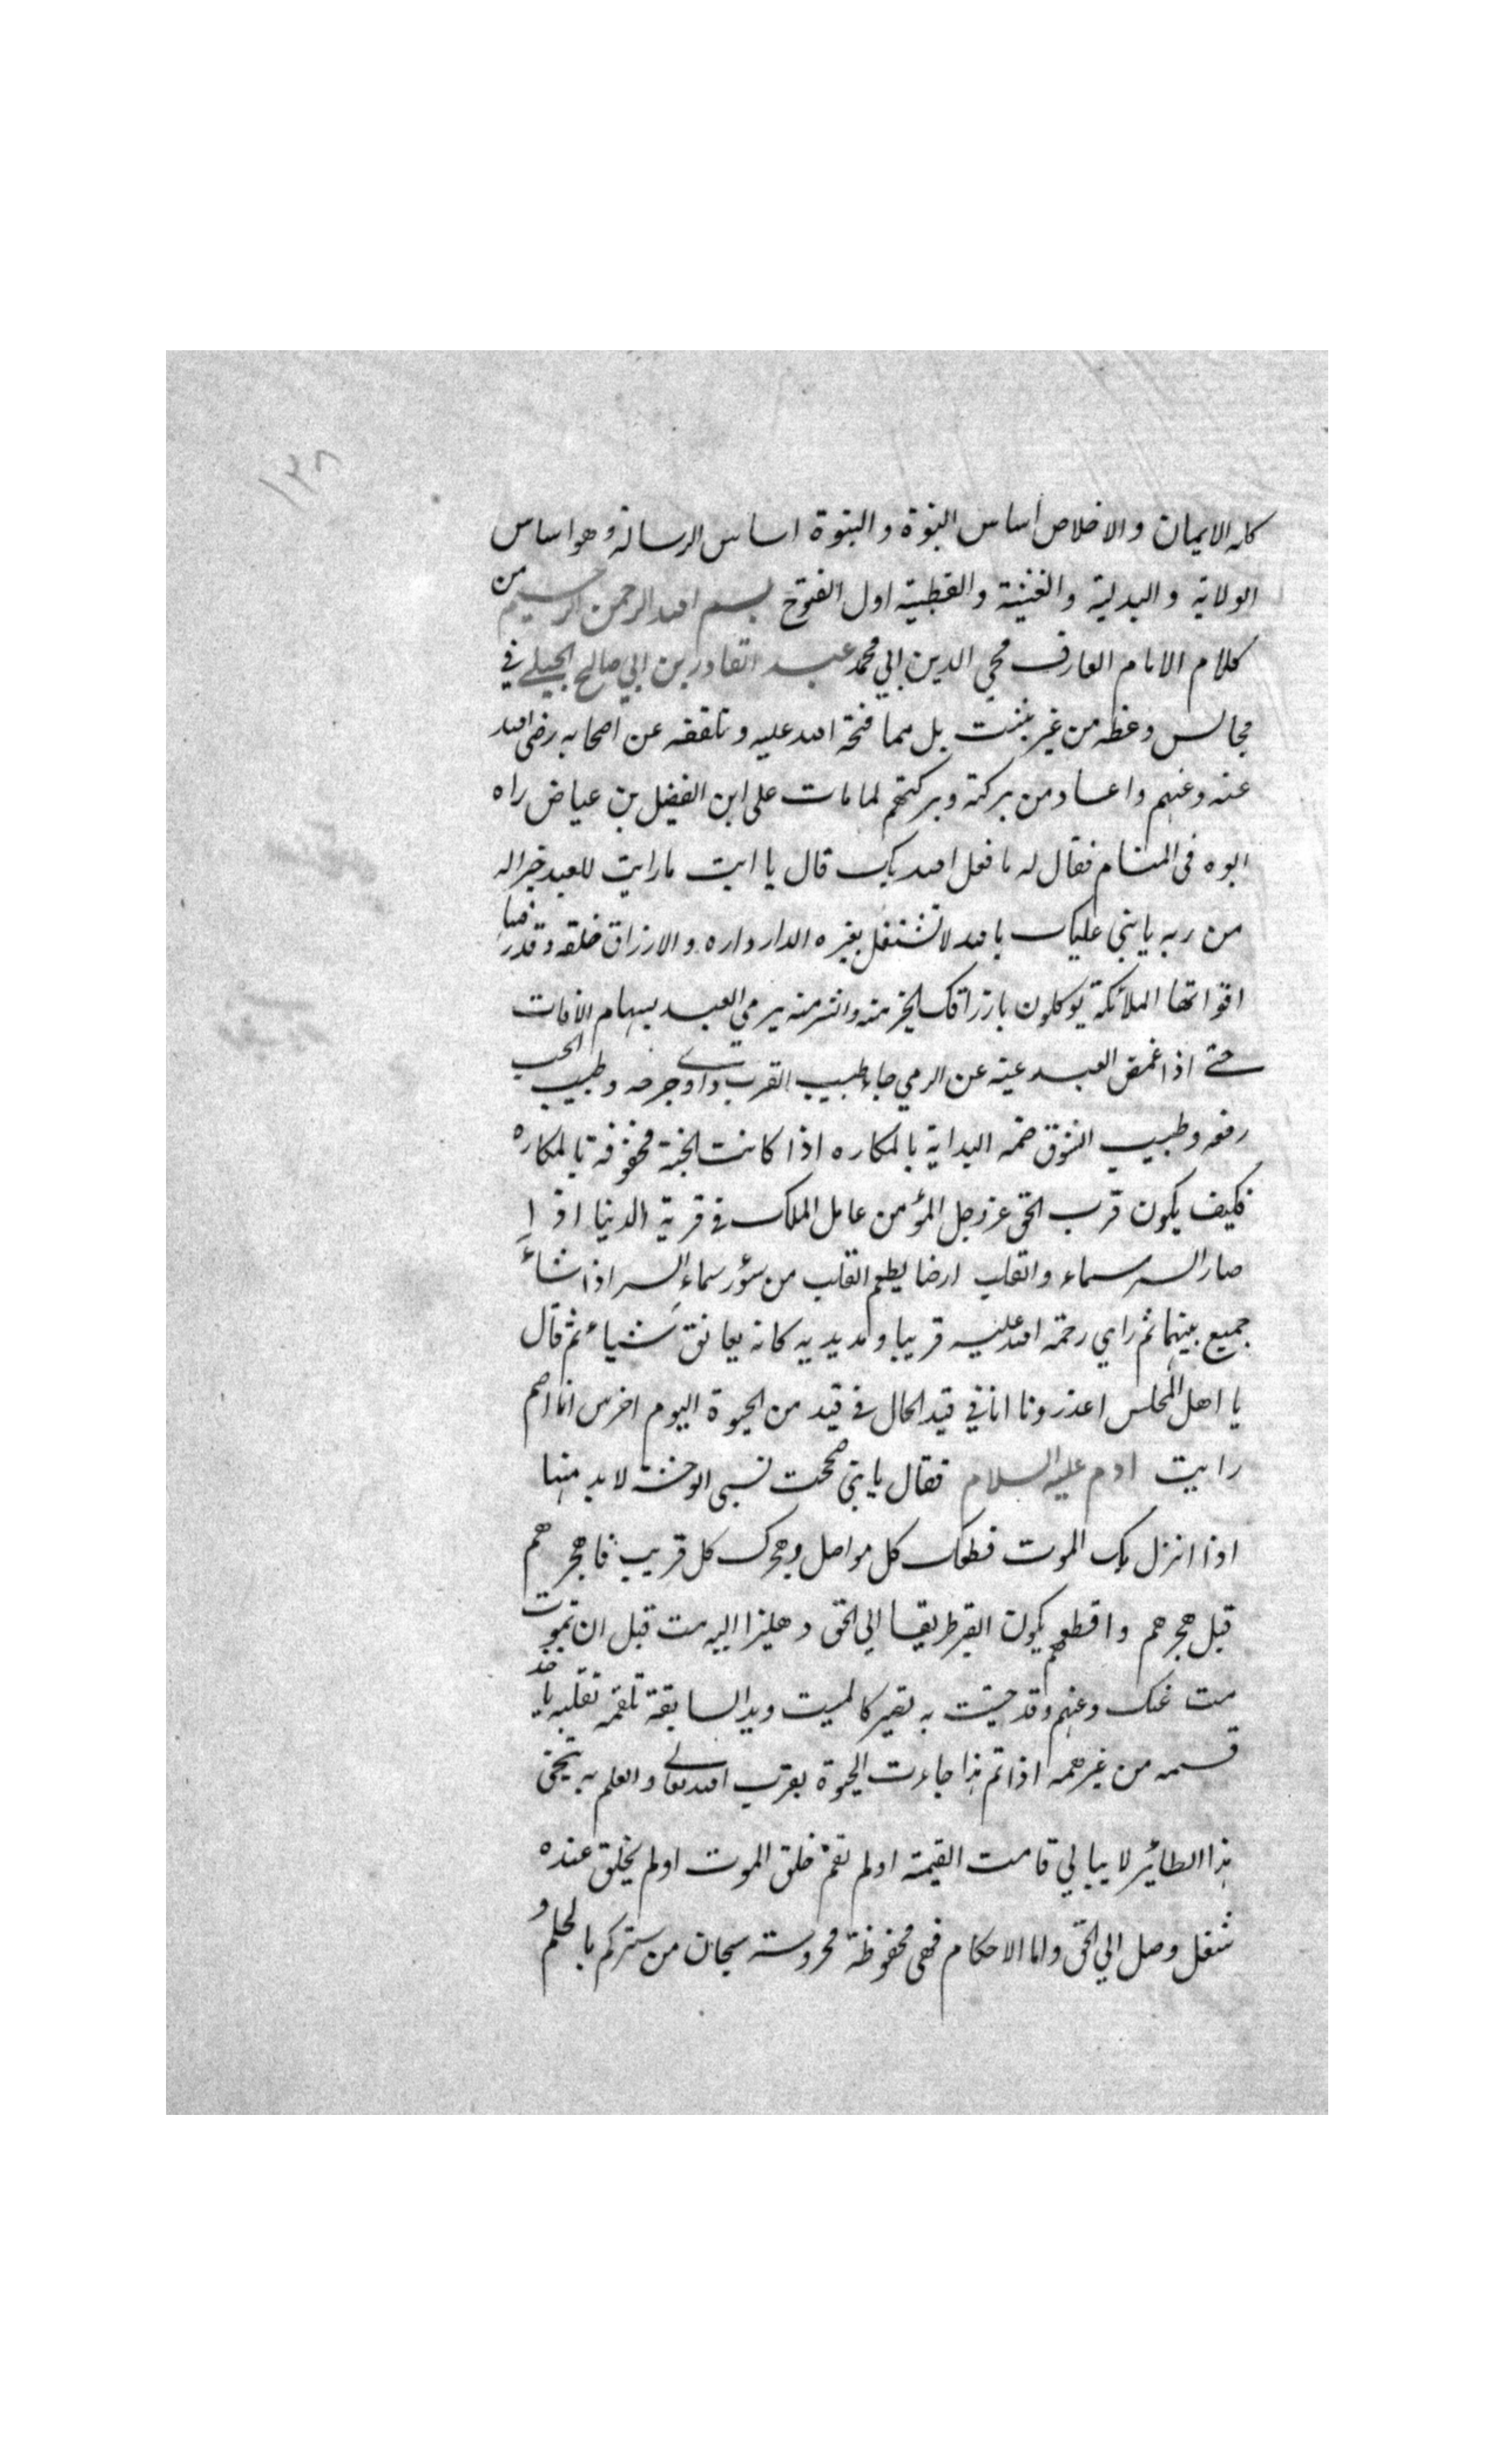 ١٣٨
كله الايمان والاخلاص اساس النبوة والنبوة اساس الرسالة وهو اساس
الولاية والبدلية والغنية والقطبية اول الفتوح بسم الله الرحمن الرحيم من
كلام الامام العارف محي الدين ابي محمد عبد القادر بن ابي صالح الجيلي في
مجالس وعظه من غير بل مما فتحه الله عليه وتلقفه عن اصحابه رضي الله
عنه وعنهم واعاد من بركته وبركتهم لما مات على ابن الفضيل بن عياض راه
ابوه في المنام فقال له ما فعل الله بك قال يا ابت ما رايت للعبد خيرا له
من ربه يا بني عليك بالله لا تشتغل بغيره الدار داره والارزاق خلقه وقدر فيها
اقواتها الملائكة يوكلون بارزاقك الخير منه والشر منه يرمي العبد بسهام الافات
حتى اذا غمض العبد عينه عن الرمي جاء طبيب القرب داوى جرحه وطبيب الحب
رفعه وطبيب الشوق ضمه البداية بالمكاره اذا كانت الجنة محفوفة بالمكاره
فكيف يكون قرب الحق عز وجل المؤمن عامل الملك في قرية الدنيا اذا
صار السر سماء والقلب ارضا يطعم القلب من سؤر سماء السر اذا شاء
جميع بينهما ثم راي رحمة الله عليه قريبا ومد يديه كانه يعانق شياء ثم قال
يا اهل المجلس اعذرونا انا في قيد الحال في قيد من الحيوة اليوم اخرس انا اصم
رايت ادم عليه السلام فقال يا بني صححت نسبي الوحشة لا بد منها
اذا انزل بك الموت قطعك كل مواصل وهجرك كل قريب فاهجرهم
قبل هجرهم واقطعهم يكون القبر طريقا الي الحق دهليزا اليه مت قبل ان تموت
مت عنك وعنهم وقد حييت به تصير كالميت ويد السابقة تلقمه تقلبه ياخذ
قسمه من غير همه اذا تم هذا جاءت الحيوة بقرب الله تعالى والعلم به
هذا الطائر لا يبالي قامت القيمة اولم تقم خلق الموت اولم يخلق عنده
شغل وصل الي الحق واما الاحكام فهي محفوظة محروسة سبحان من ستركم بالحلم و